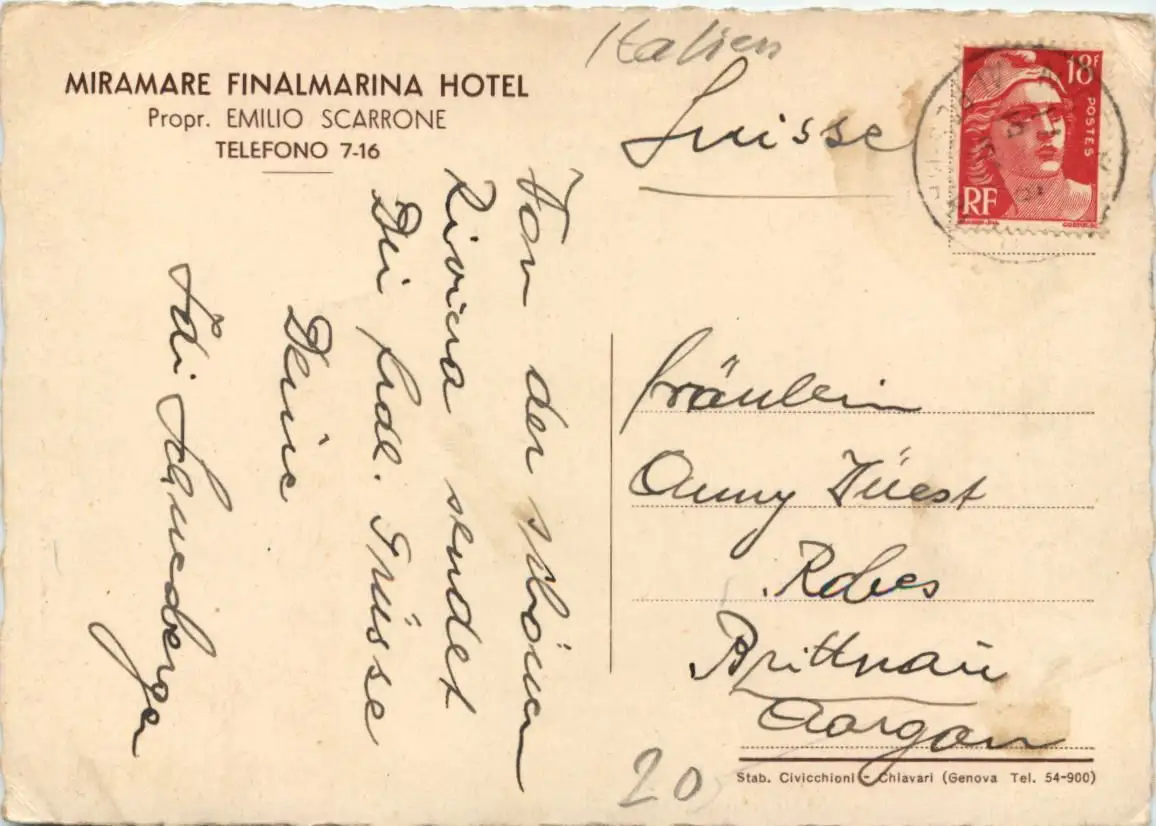 MIRAMARE FINALMARINA HOTEL
Propr. EMILIO SCARRONE
TELEFONO 7-16
Italien
Suisse
18F
POSTES
RF
Von der schönen
Riviera sendet
Dir frdl. Grüsse
Deine
Fräulein
Anny Wüest
Robes
Brittnau
Aargau
20
Stab. Civicchioni - Chiavari (Genova Tel. 54-900)